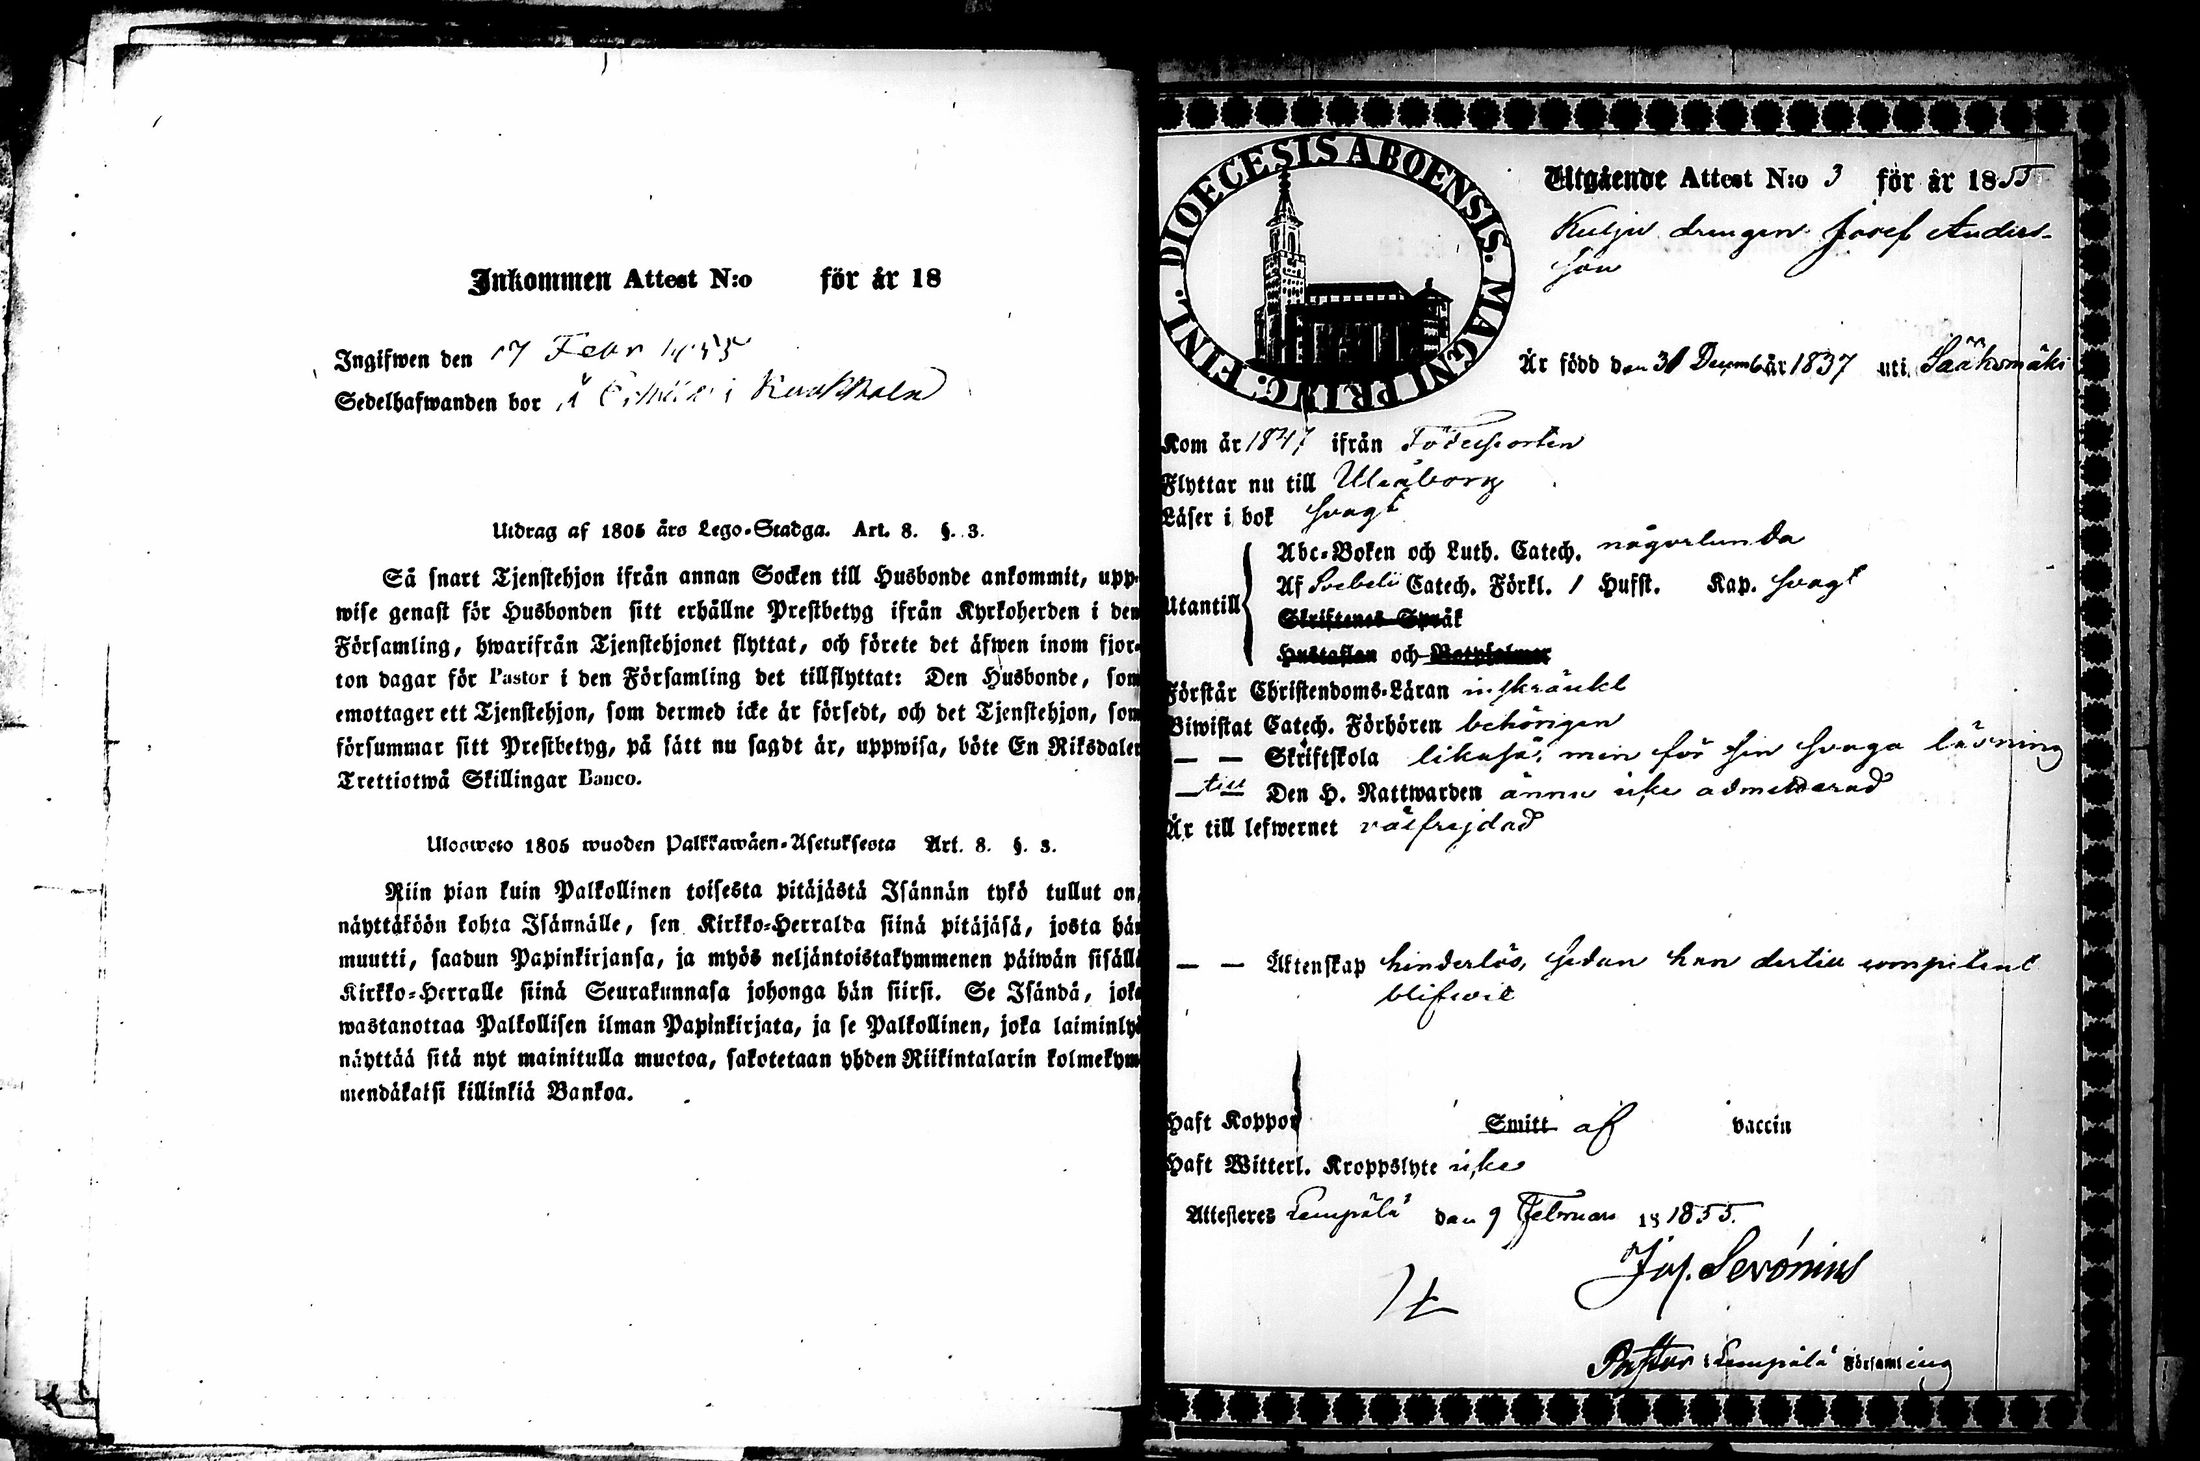 Inkommen Attest N:o för år 18
Ingifwen den 17 Febr 1855
Sedelhafwanden bor å i
Utdrag af 1805 års Lego-Stadga. Art. 8. §. 3.
Så snart Tjenstehjon ifrån annan Socken till Husbonde ankommit, upp-
wise genast för Husbonden sitt erhållne Prestbetyg ifrån Kyrkoherden i den
Församling, hwarifrån Tjenstehjonet flyttat, och förete det äfwen inom fjor-
ton dagar för Pastor i den Församling det tillflyttat: Den Husbonde, som
emottager ett Tjenstehjon, som dermed icke är försedt, och det Tjenstehjon, som
försummar sitt Prestbetyg, på sätt nu sagdt är, uppwisa, böte En Riksdaler
Trettiotwå Skillingar Banco.
Ulosweto 1805 wuoden Palkkawäen-Asetuksesta Art. 8. §. 3.
Niin pian kuin Palkollinen toisesta pitäjästä Isännän tykö tullut on,
näyttäköön kohta Isännälle, sen Kirkko-Herralda siinä pitäjäsä, josta hän
muutti, saadun Papinkirjansa, ja myös neljäntoistakymmenen päiwän sisällä
Kirkko-Herralle siinä Seurakunnasa johonga hän siirsi. Se Isändä, joka
wastanottaa Palkollisen ilman Papinkirjata, ja se Palkollinen, joka laiminlyö
näyttää sitä nyt mainitulla muotoa, sakotetaan yhden Riikintalarin kolmekym-
mendäkaksi killinkiä Bankoa.
DIOECESIS ABOENSIS. MAGNI PRINC. FINL.
Utgående Attest N:o 3 för år 1855
Kulju drengen Josef Anders-
son
Är född den 31 December 1837 uti Sääksmäki
Kom år 1847 ifrån Födelseorten
Flyttar nu till Uleåborg
Läser i bok svagt
Abc-Boken och Luth. Catech. någorlunda
Utantill Af Svebelii Catech. Förkl. 1 Hufst. Kap. svagt
Skriftenes Språk
Hustaflan och Botpsalmer
Förstår Christendoms-Läran inskränkt
Biwistat Catech. Förhören behörigen
— — Skriftskola likaså, men för sin svaga läsning
— till — Den H. Nattwarden ännu icke admitterad
Är till lefwernet välfrejdad
— — Äktenskap hinderlös, sedan han dertill competent
blifwit
Haft Koppor Smitt af vaccin
Haft Witterl. Kroppslyte icke
Attesteres Lempälä den 9 Februari 18 1855.
Jos. Serónius
Pastor i Lempälä Församling